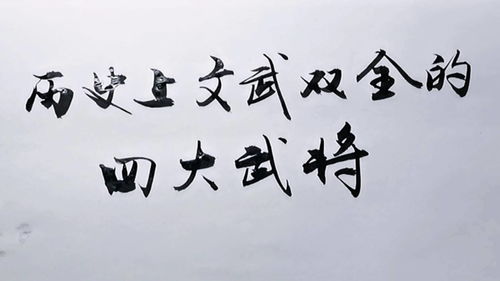 历史上文武双全的
四大武将